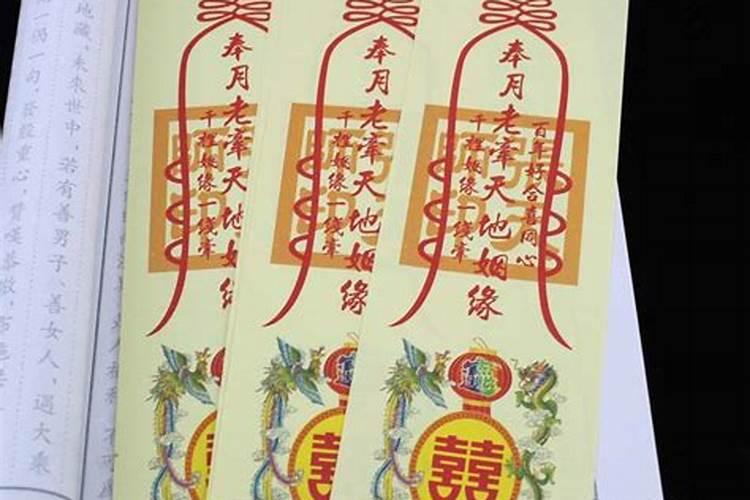 地藏,未來世中,若有善男子、善女人,遇大乘
一偈一句,發殷重心,
奉月老牽天地姻緣
千裡姻緣一线牽
囍
奉月老牽天地姻緣
千裡姻緣一线牽
囍
百年好合喜同心
奉月老牽天地姻緣
千裡姻緣一线牽
囍